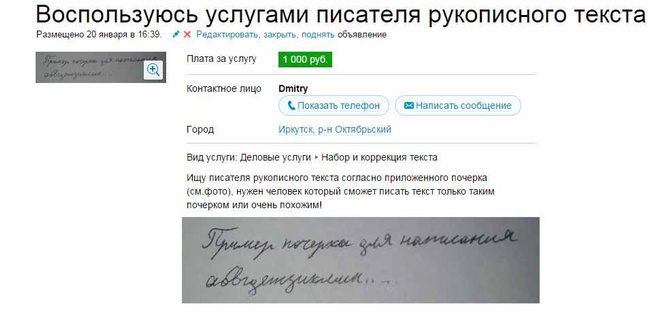 Воспользуюсь услугами писателя рукописного текста
Размещено 20 января в 16:39. Редактировать, закрыть, поднять объявление
Пример почерка для написания
абвгдежзиклмн. . . .
Плата за услугу 1 000 руб.
Контактное лицо Dmitry
Показать телефон Написать сообщение
Город Иркутск, р-н Октябрьский
Вид услуги: Деловые услуги ▸ Набор и коррекция текста
Ищу писателя рукописного текста согласно приложенного почерка
(см.фото), нужен человек который сможет писать текст только таким
почерком или очень похожим!
Пример почерка для написания
абвгдежзиклмн. . . .